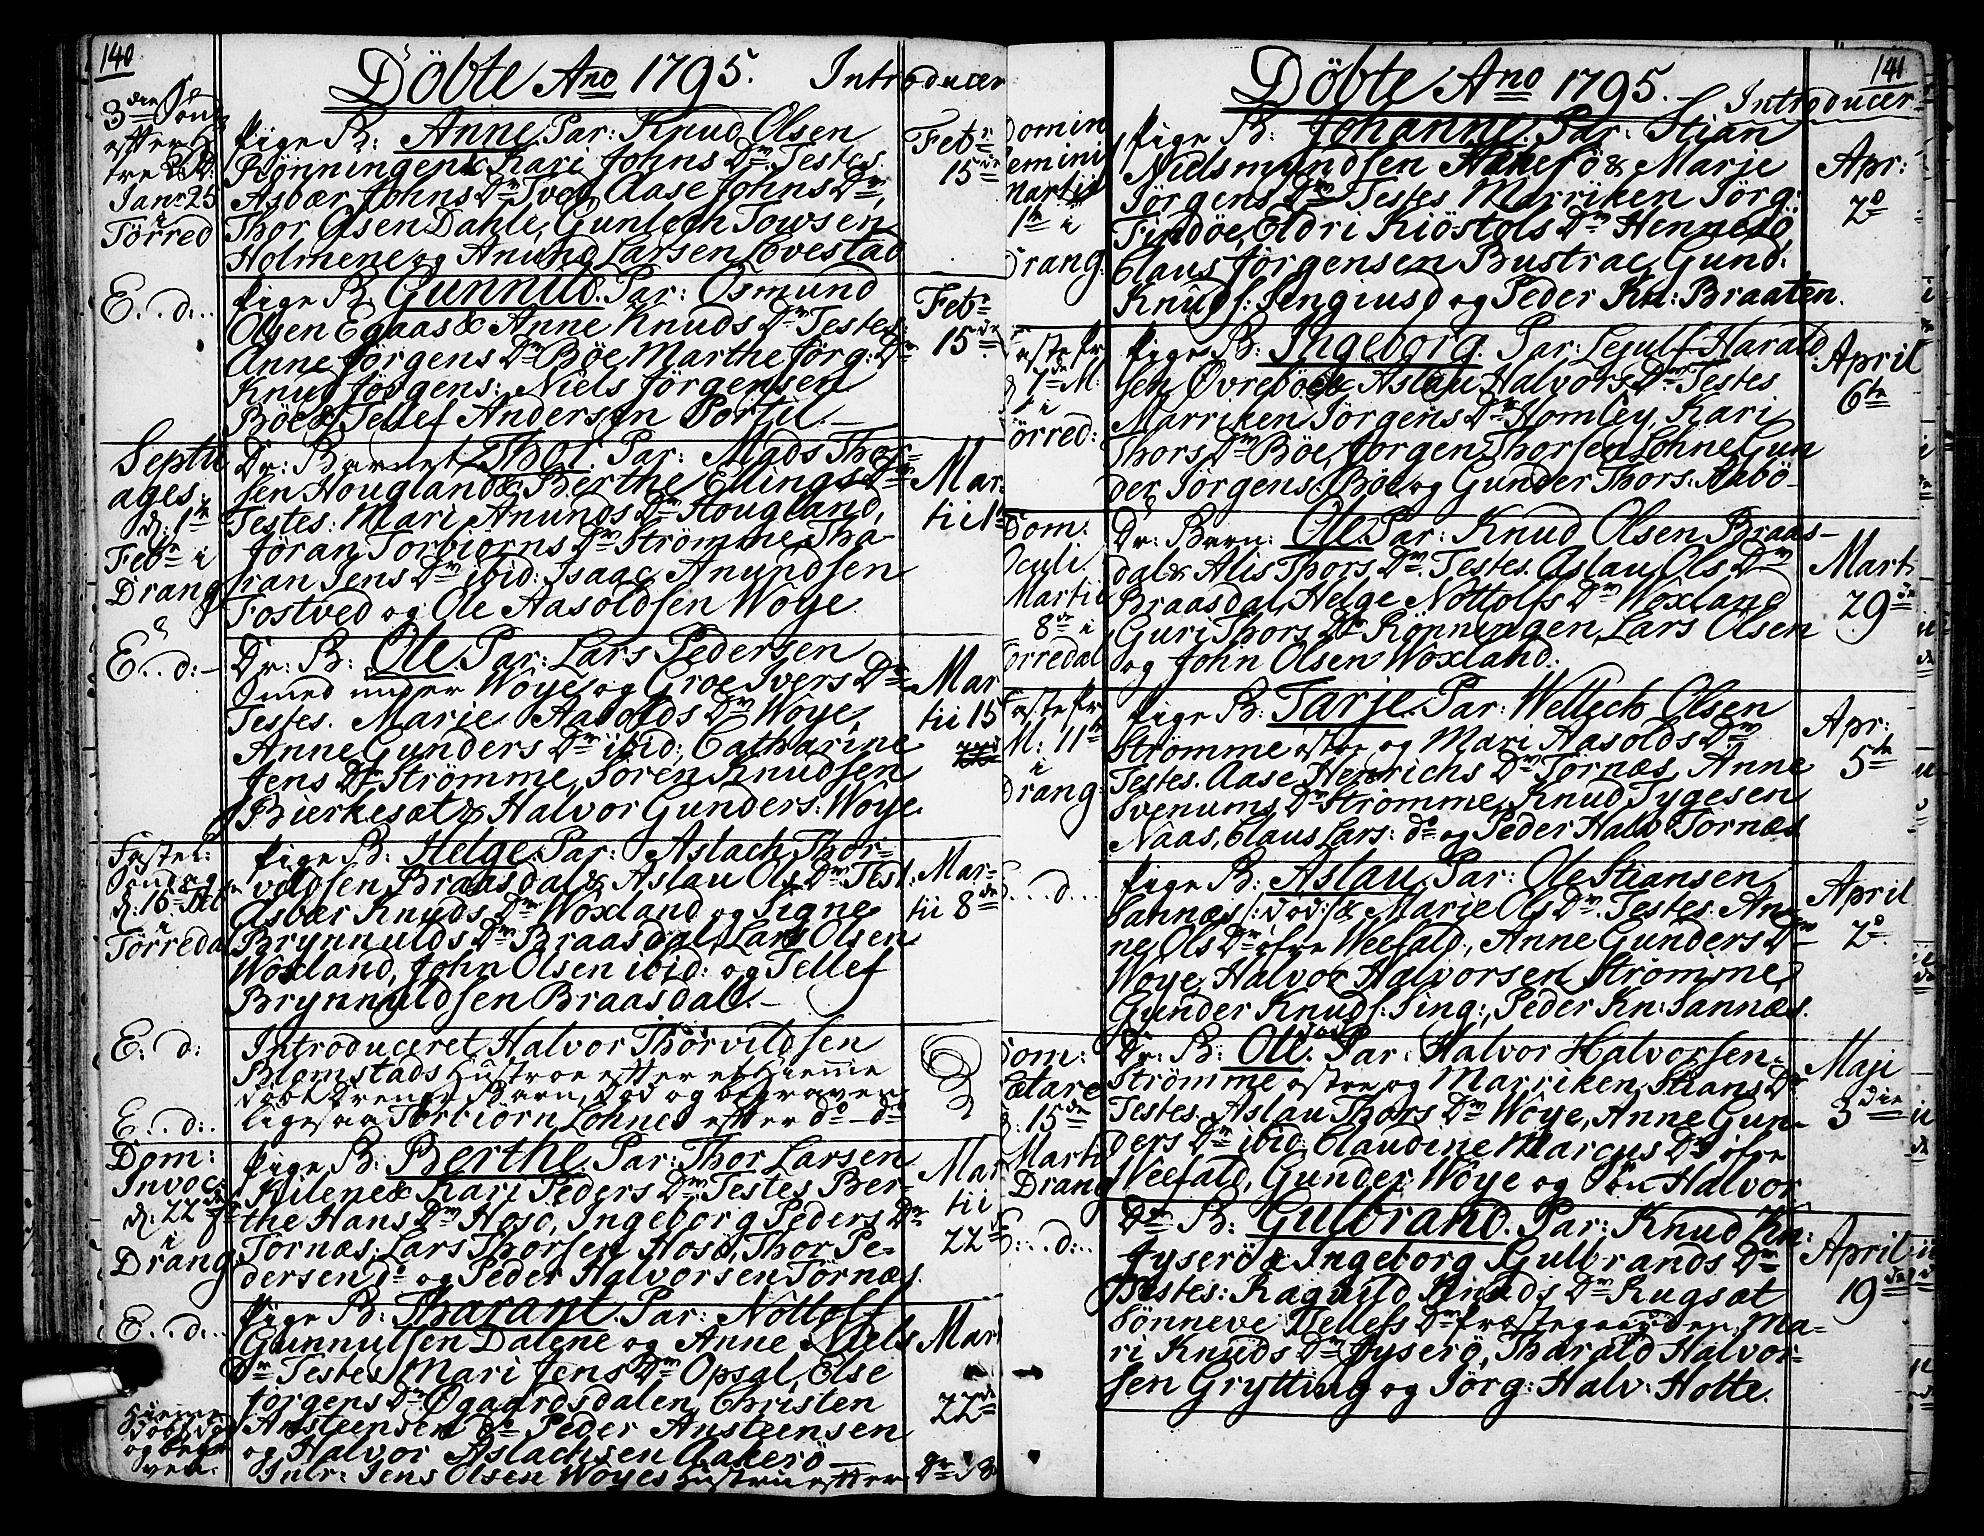 140
Döbte Ano 1795. Introducer
3die Sönd.
efter H.
tre K. D.
Janr 25
i
Törred
Pige B: Anne. Par: Knud Olsen
Rönningen & Kari Johns Dr. Testes
Asbær Johns Dr Tved, Aase Johns Dr,
Thor Olsen Dahle, Gunlech Towsen
Holmene og Anund Larsen Lovestad
Febr
15de
E..d:..
Pige B. Gunnild. Par: Osmund
Olsen Egaas & Anne Knuds Dr. Testes:
Anne Jörgens Dr Böe, Marthe Jörg: Dr
Knud Jörgens: Niels Jörgensen
Böe & Tellef Andersen Portil.
Febr
15de
Septu
ages.
d: 1te
Febr i
Drang
Dr: Barnet Thor. Par: Mads Thor-
sen Hougland & Berthe Ellings Dr
Testes: Mari Anunds Dr Hougland,
Jöran Torbiorns Dr Strömme, Tha-
ran Jens Dr ibid: Isaac Anundsen
Fostved og Ole Aasoldsen Woye
Mar
tii 1te
E..d:-
Dr: B: Ole. Par: Lars Pedersen
Smed under Woye og Groe Ivers Dr
Testes. Marie Aasolds Dr Woye,
Anne Gunders Dr ibid: Catharine
Jens Dr Strömme, Sören Knudsen
Bierkesæt & Halvor Gunders: Woye.
Mar
tii 15
Fastel:
Söndag
d: 15 Feb
i
Törredal
Pige B: Helge. Par: Aslach Thor-
vildsen Braasdal & Aslau Ols Dr Test:
Asbær Knuds Dr Woxland og Signe
Brynnulds Dr Braasdal, Lars Olsen
Woxland, John Olsen ibid: og Tellef
Brynnuldsen Braasdal.-
Mar-
tii 8de
E: d:
Introduceret Halvor Thorvildsen
Blomstads Hustroe efter et Hiemme
döbt Drenge Barn, död og begraven
E...d:.
ligesaa Torbiörn Lohnes efter do - do
Dom:
Invoc:
d: 22de
i
Drang
Pige B: Berthe. Par: Thor Larsen
Kilene & Kari Peders Dr. Testes Ber-
the Hans Dr Hosö, Ingeborg Peders Dr
Tornæs: Lars Thorsen Hosö, Thor Pe-
dersen do og Peder Halvorsen Törnæs.
Mar
tii
22de
E...d:..
Pige B: Tharant. Par: Nottolf
Gunnulfsen Dalene og Anne Niels
Dr Testes Mari Jens Dr Opsal, Else
Jorgens Dr Øgaardsdalen, Christen
Ansteensen do Peder Ansteensen
og Halvor Aslachsen Aakerö
Mar
22de
Hiemme
döbt död
og begra
ven.
Intr: Jens Olsen Woyes Hustru efter
141
Döbte Ano 1795. Introducer
Domin
Remini
Martii
1te i
Drang.
Pige B: Johanne. Par: Stian
Nielsmyndsen Hakesö & Marie
Jörgens Dr Testes Marriken Jörg:
Findöe, Eldri Kiöstols Dr Hennesö
Claus Jörgensen Bustrac, Gund:
Knuds: Sengiusd og Peder Kn: Braaten.
Apr:
2o
Faste Pr
d. 7de M:
i
Törred:
Pige B: Ingeborg. Par: Lejulf Harald
sen Øvreböe & Aslau Halvors Dr Testes
Marriken Jörgens Dr Homley, Kari
Thors Dr Böe, Jorgen Thorsen Lohne Gun
der Jörgens: Böe og Gunder Thors: Aabö-
April
6te
Dom:
Oculi
Martii
8de i
Torredal
Dr: Barn: Ole. Par: Knud Olsen Braas-
dal & Alis Thors Dr. Testes. Aslau Ols Dr
Braasdal, Helge Nottolfs Dr Woxland
Guri Thors Dr Rönningen, Lars Olsen
og John Olsen Woxland.
Mart
29de
Faste Pr
M: 11te
i
Drang:
Pige B: Tarje. Par: Wellech Olsen
Strömme östre og Mari Aasolds Dr
Testes. Aase Henrichs Dr Tornæs, Anne
Svenums Dr Strömme, Knud Tygesen
Naas, Claus Lars: do og Peder Halv: Tornæs
Apr:
5te
E...d:..
Pige B: Aslau. Par: Ole Stiansen
Sannæs /: död :/ & Marie Ols Dr. Testes. An-
ne Ols Dr öfre Weefald, Anne Gunders Dr
Woye, Halvor Halvorsen Strömme,
Gunder Knuds: Sing:, Peder Kn: Sannæs.
April
2o.
Dom:
Lætare
d: 15de
Marti
Drang
Dr: B: Ole. död Par: Halvor Halvorsen
Strömme östre og Marriken Stians Dr
Testes. Aslau Thors Dr Woye, Anne Gun-
ders Dr ibid: Claudine Marcus Dr öfre
Weefald, Gunder Woye og Sön Halvor
Maji
3die
E:..d:..
Dr B: Gulbrand. Par: Knud Kn:
Fyserö & Ingeborg Gulbrands Dr
Testes: Ragnild Knuds Dr Rugsæt
Sönneve Tellefs Dr Præstegaarden, Ma-
ri Knuds Dr Fyserö, Tharald Halvor-
sen Grytting og Jörg: Halv: Holte.
April
19de